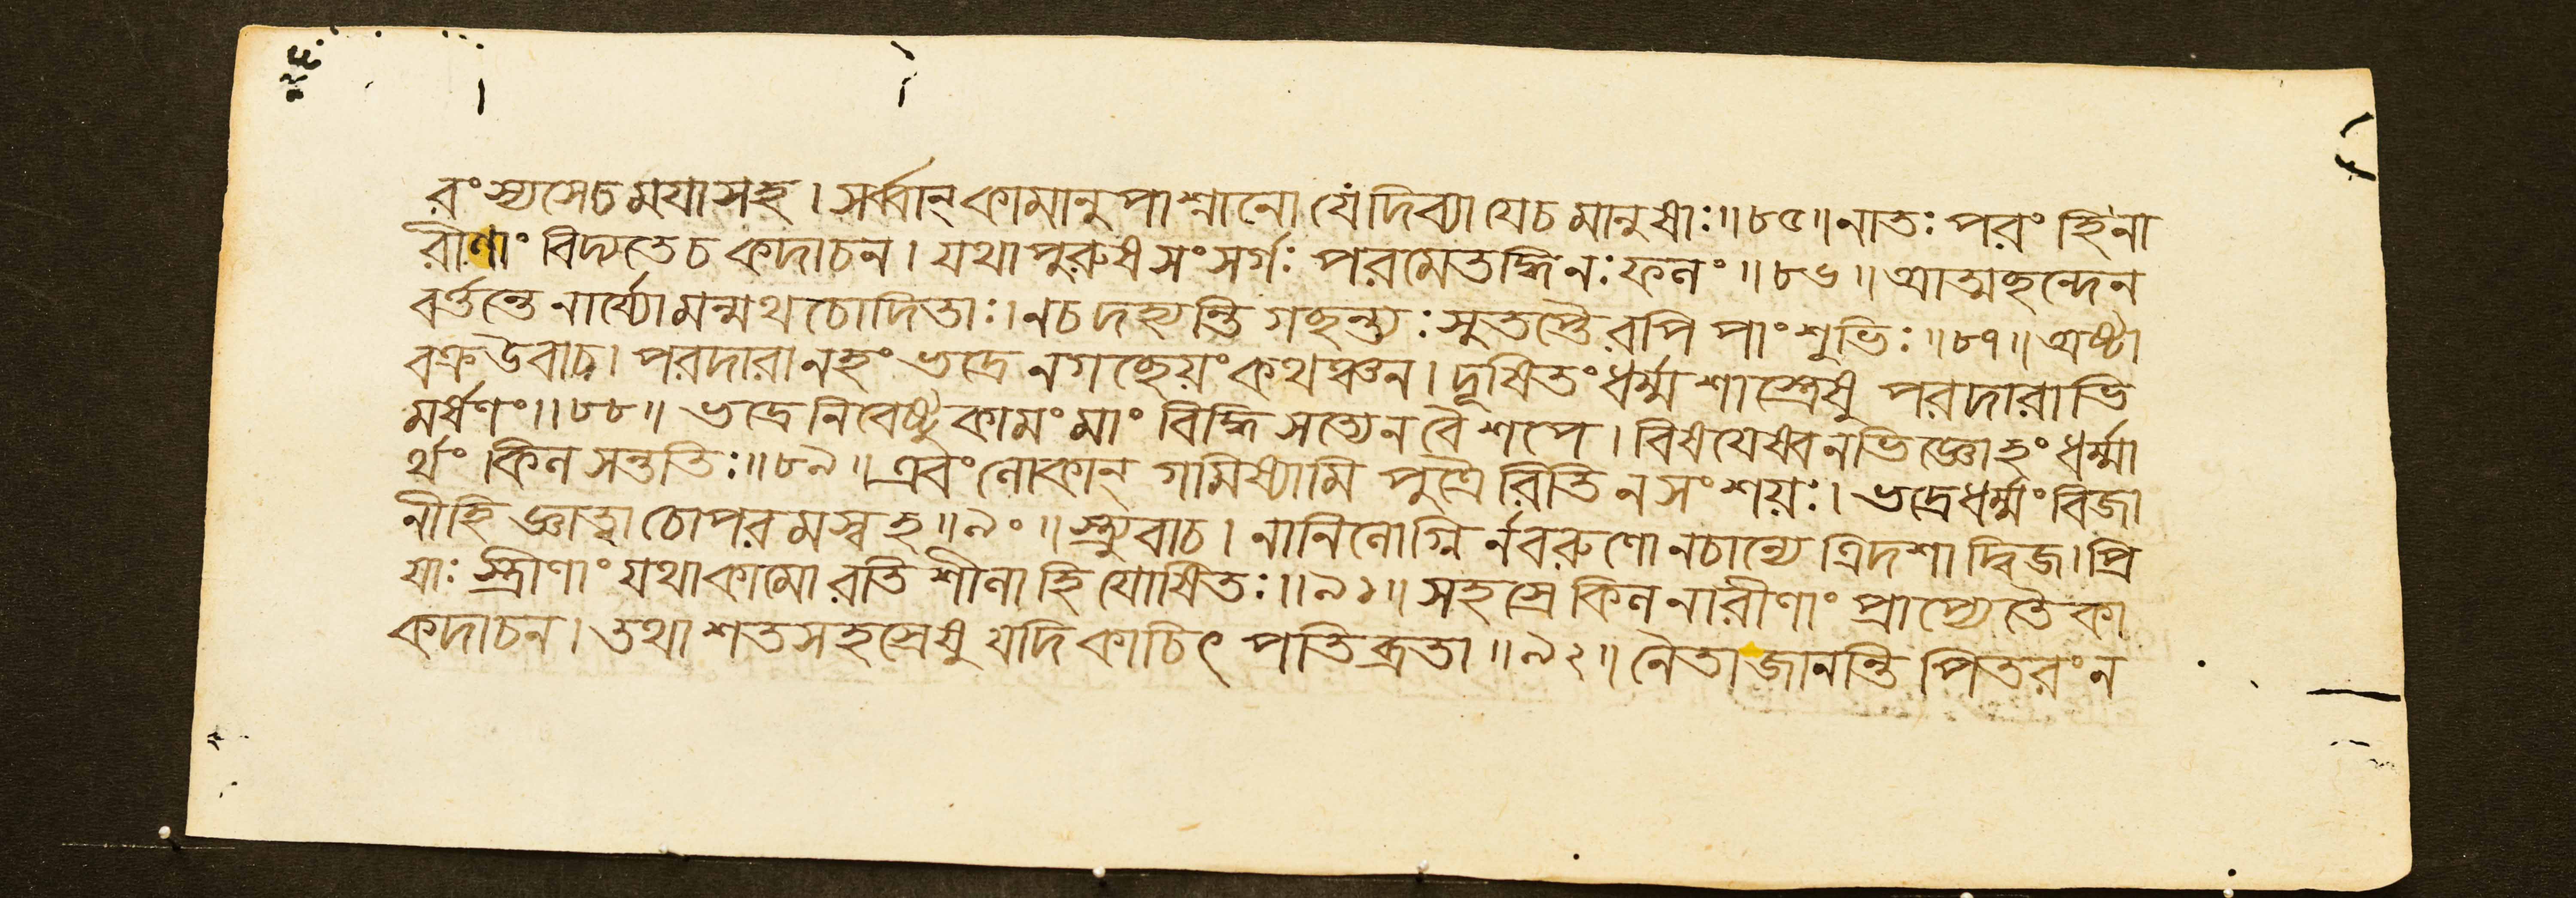 রংস্যসেচ ময়াসহ। সর্ব্বান্ কামানুপাশ্নানো যেদিব্যা যেচ মানুষাঃ॥৮৫॥ নাতঃ পরং হি না
রীণাং বিদ্যতে চ কদাচন। যথা পুরুষসংসর্গঃ পরমেতদ্ধি নঃ ফলং॥৮৬॥ আত্মছন্দেন
বর্ত্তন্তে নার্য্যো মন্মথচোদিতাঃ। নচ দহ্যন্তি গছন্ত্যঃ সুতপ্তৈরপি পাংশুভিঃ॥৮৭॥ অষ্টা
বক্র উবাচ। পরদারানহং ভদ্রে নগছেয়ং কথঞ্চন। দূষিতং ধর্ম্মশাস্ত্রেষু পরদারাভি
মর্ষণং॥৮৮॥ ভদ্রে নিবেষ্টুকামং মাং বিদ্ধি সত্যেন বৈ শপে। বিষয়েষ্বনভিজ্ঞোহং ধর্ম্মা
র্থং কিল সন্ততিঃ॥৮৯॥ এবং লোকান্ গামিষ্যামি পুত্রৈরিতি ন সংশয়ঃ। ভদ্রে ধর্ম্মং বিজা
নীহি জ্ঞাত্বা চোপরমস্ব হ॥৯০॥ স্ত্র্যুবাচ। নানিলোগ্নির্নবরুণো নচান্যে ত্রিদশা দ্বিজ। প্রি
য়াঃ স্ত্রীণাং যথা কামো রতিশীলা হি যোষিতঃ॥৯১॥ সহস্রে কিল নারীণাং প্রাপ্যেতৈকা
কদাচন। তথা শতসহস্রেষু যদি কাচিৎ পতিব্রতা॥৯২॥ নৈতা জানন্তি পিতরং ন